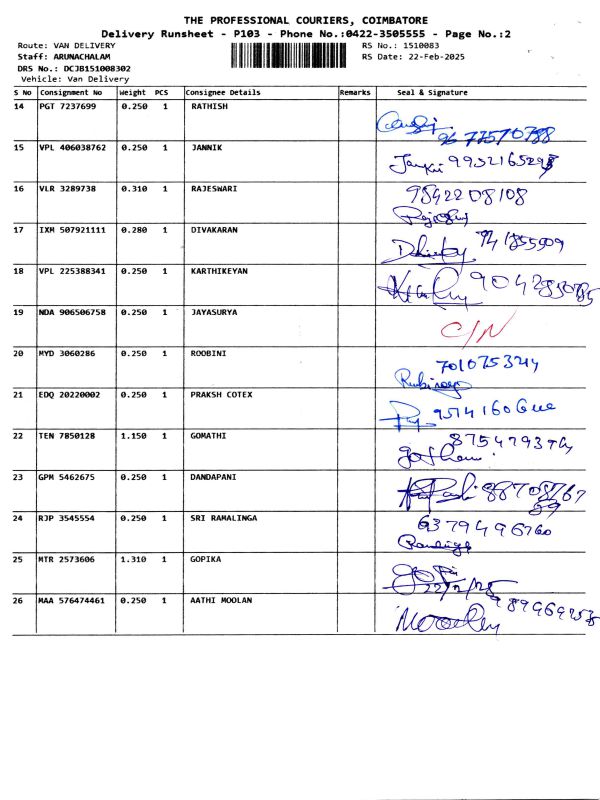 THE PROFESSIONAL COURIERS, COIMBATORE
Delivery Runsheet - P103 - Phone No.:0422-3505555 - Page No.:2
Route: VAN DELIVERY RS No.: 1510083
Staff: ARUNACHALAM RS Date: 22-Feb-2025
DRS No.: DCJB151008302
Vehicle: Van Delivery
S No Consignment No Weight PCS Consignee Details Remarks Seal & Signature
14 PGT 7237699 0.250 1 RATHISH
9677570788
15 VPL 406038762 0.250 1 JANNIK
16 VLR 3289738 0.310 1 RAJESWARI 9842208108
17 IXM 507921111 0.280 1 DIVAKARAN
18 VPL 225388341 0.250 1 KARTHIKEYAN
19 NDA 906506758 0.250 1 JAYASURYA
C/N
20 MYD 3060286 0.250 1 ROOBINI
21 EDQ 20220002 0.250 1 PRAKSH COTEX
22 TEN 7850128 1.150 1 GOMATHI
23 GPM 5462675 0.250 1 DANDAPANI
24 RJP 3545554 0.250 1 SRI RAMALINGA 6379496760
25 MTR 2573606 1.310 1 GOPIKA
22/2/25
26 MAA 576474461 0.250 1 AATHI MOOLAN